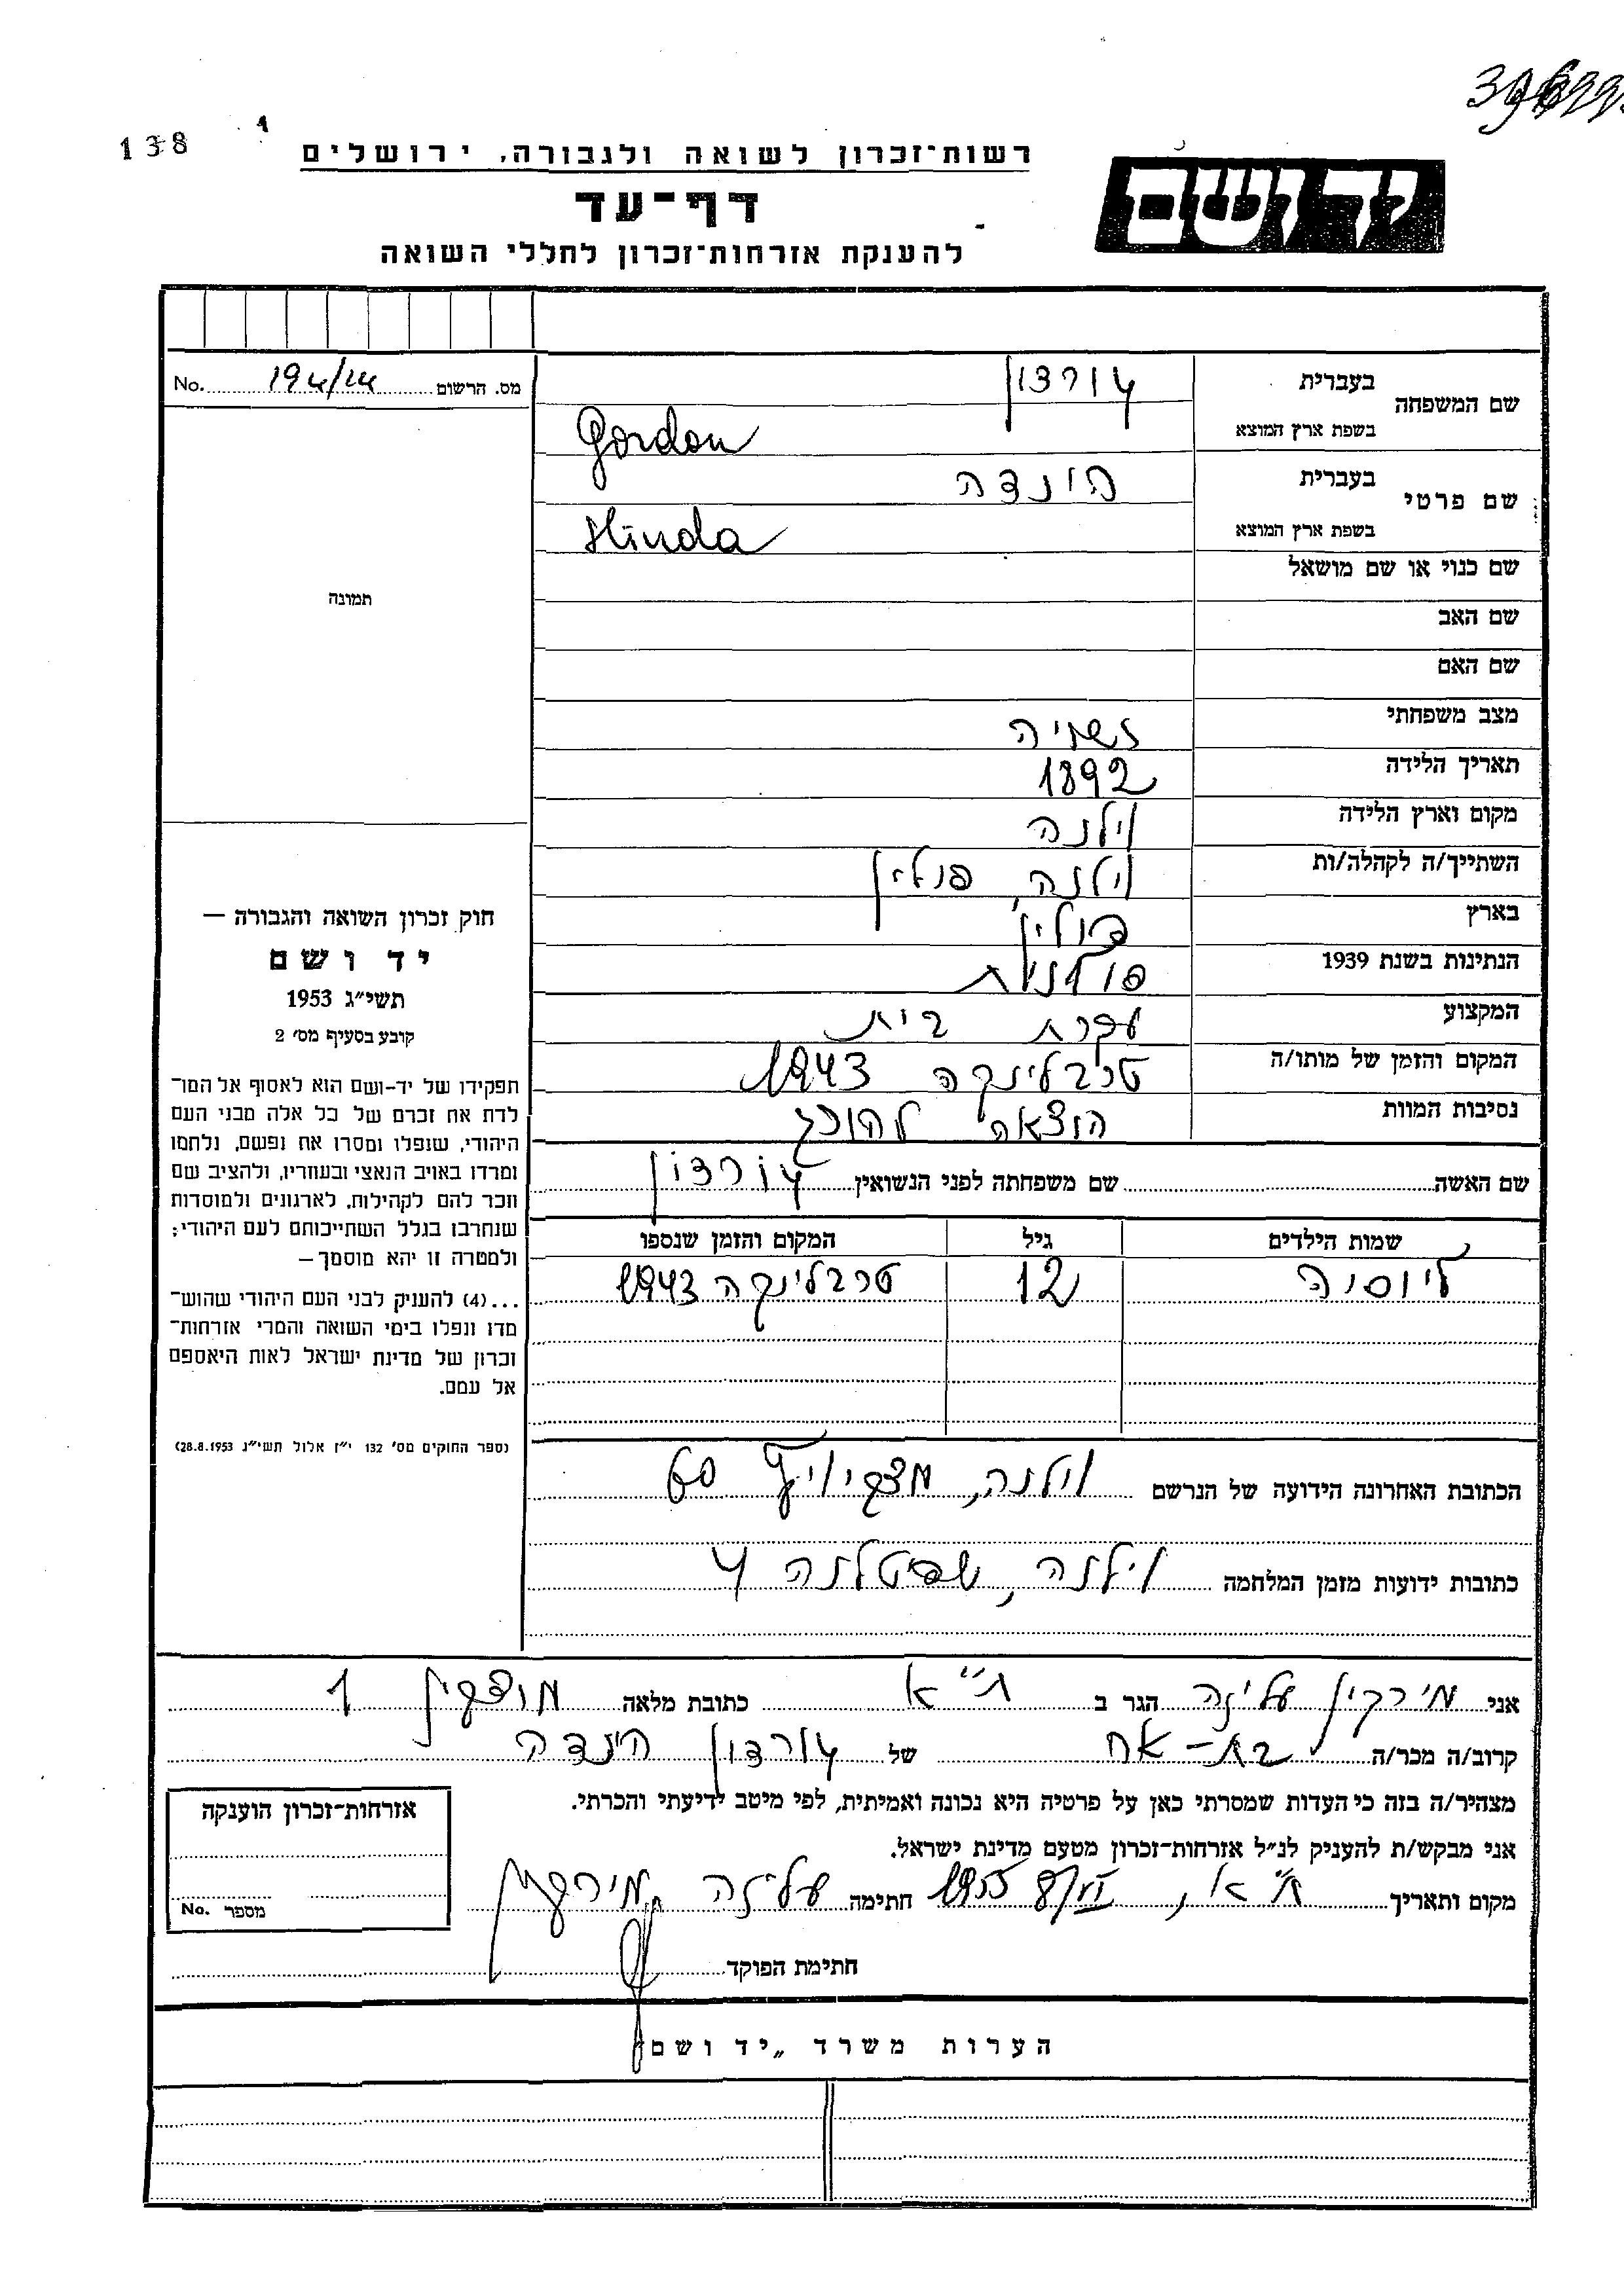 138
רשות־זכרון לשואה ולגבורה, ירושלים
ידושם
דף־עד
להענקת אזרחות־זכרון לחללי השואה
מס. הרשום No. 194/24
שם המשפחה בעברית גורדון
בשפת ארץ המוצא Gordon
שם פרטי בעברית הינדה
בשפת ארץ המוצא Hinda
שם כנוי או שם מושאל
תמונה
שם האב
שם האם
מצב משפחתי נשויה
תאריך הלידה 1892
מקום וארץ הלידה וילנה
השתייך/ה לקהלה/ות וילנה פולין
בארץ פולין
הנתינות בשנת 1939 פולנית
המקצוע עקרת בית
המקום והזמן של מותו/ה טרבלינקה 1943
נסיבות המוות הוצאה להורג
שם האשה שם משפחתה לפני הנשואין גורדון
שמות הילדים גיל המקום והזמן שנספו
ליוסיה 12 טרבלינקה 1943
הכתובת האחרונה הידועה של הנרשם וילנה, 60
כתובות ידועות מזמן המלחמה וילנה, שפטלנה 4
חוק זכרון השואה והגבורה —
יד ושם
תשי״ג 1953
קובע בסעיף מס׳ 2
תפקידו של יד-ושם הוא לאסוף אל המו־
לדת את זכרם של כל אלה מבני העם
היהודי, שנפלו ומסרו את נפשם, נלחמו
ומרדו באויב הנאצי ובעוזריו, ולהציב שם
וזכר להם לקהילות, לארגונים ולמוסדות
שנחרבו בגלל השתייכותם לעם היהודי;
ולמטרה זו יהא מוסמך —
...(4) להעניק לבני העם היהודי שהוש־
מדו ונפלו בימי השואה והמרי אזרחות־
זכרון של מדינת ישראל לאות היאספם
אל עמם.
(ספר החוקים מס׳ 132 י״ז אלול תשי״ג 28.8.1953)
אני מירקין עליזה הגר ב ת״א כתובת מלאה מוצקין 1
קרוב/ה מכר/ה בת-אח של גורדון הינדה
מצהיר/ה בזה כי העדות שמסרתי כאן על פרטיה היא נכונה ואמיתית, לפי מיטב ידיעתי והכרתי.
אני מבקש/ת להעניק לנ״ל אזרחות־זכרון מטעם מדינת ישראל.
מקום ותאריך ת״א, 8/VI 1955 חתימה עליזה מירקין
חתימת הפוקד
אזרחות־זכרון הוענקה
מספר No.
הערות משרד „יד ושם״